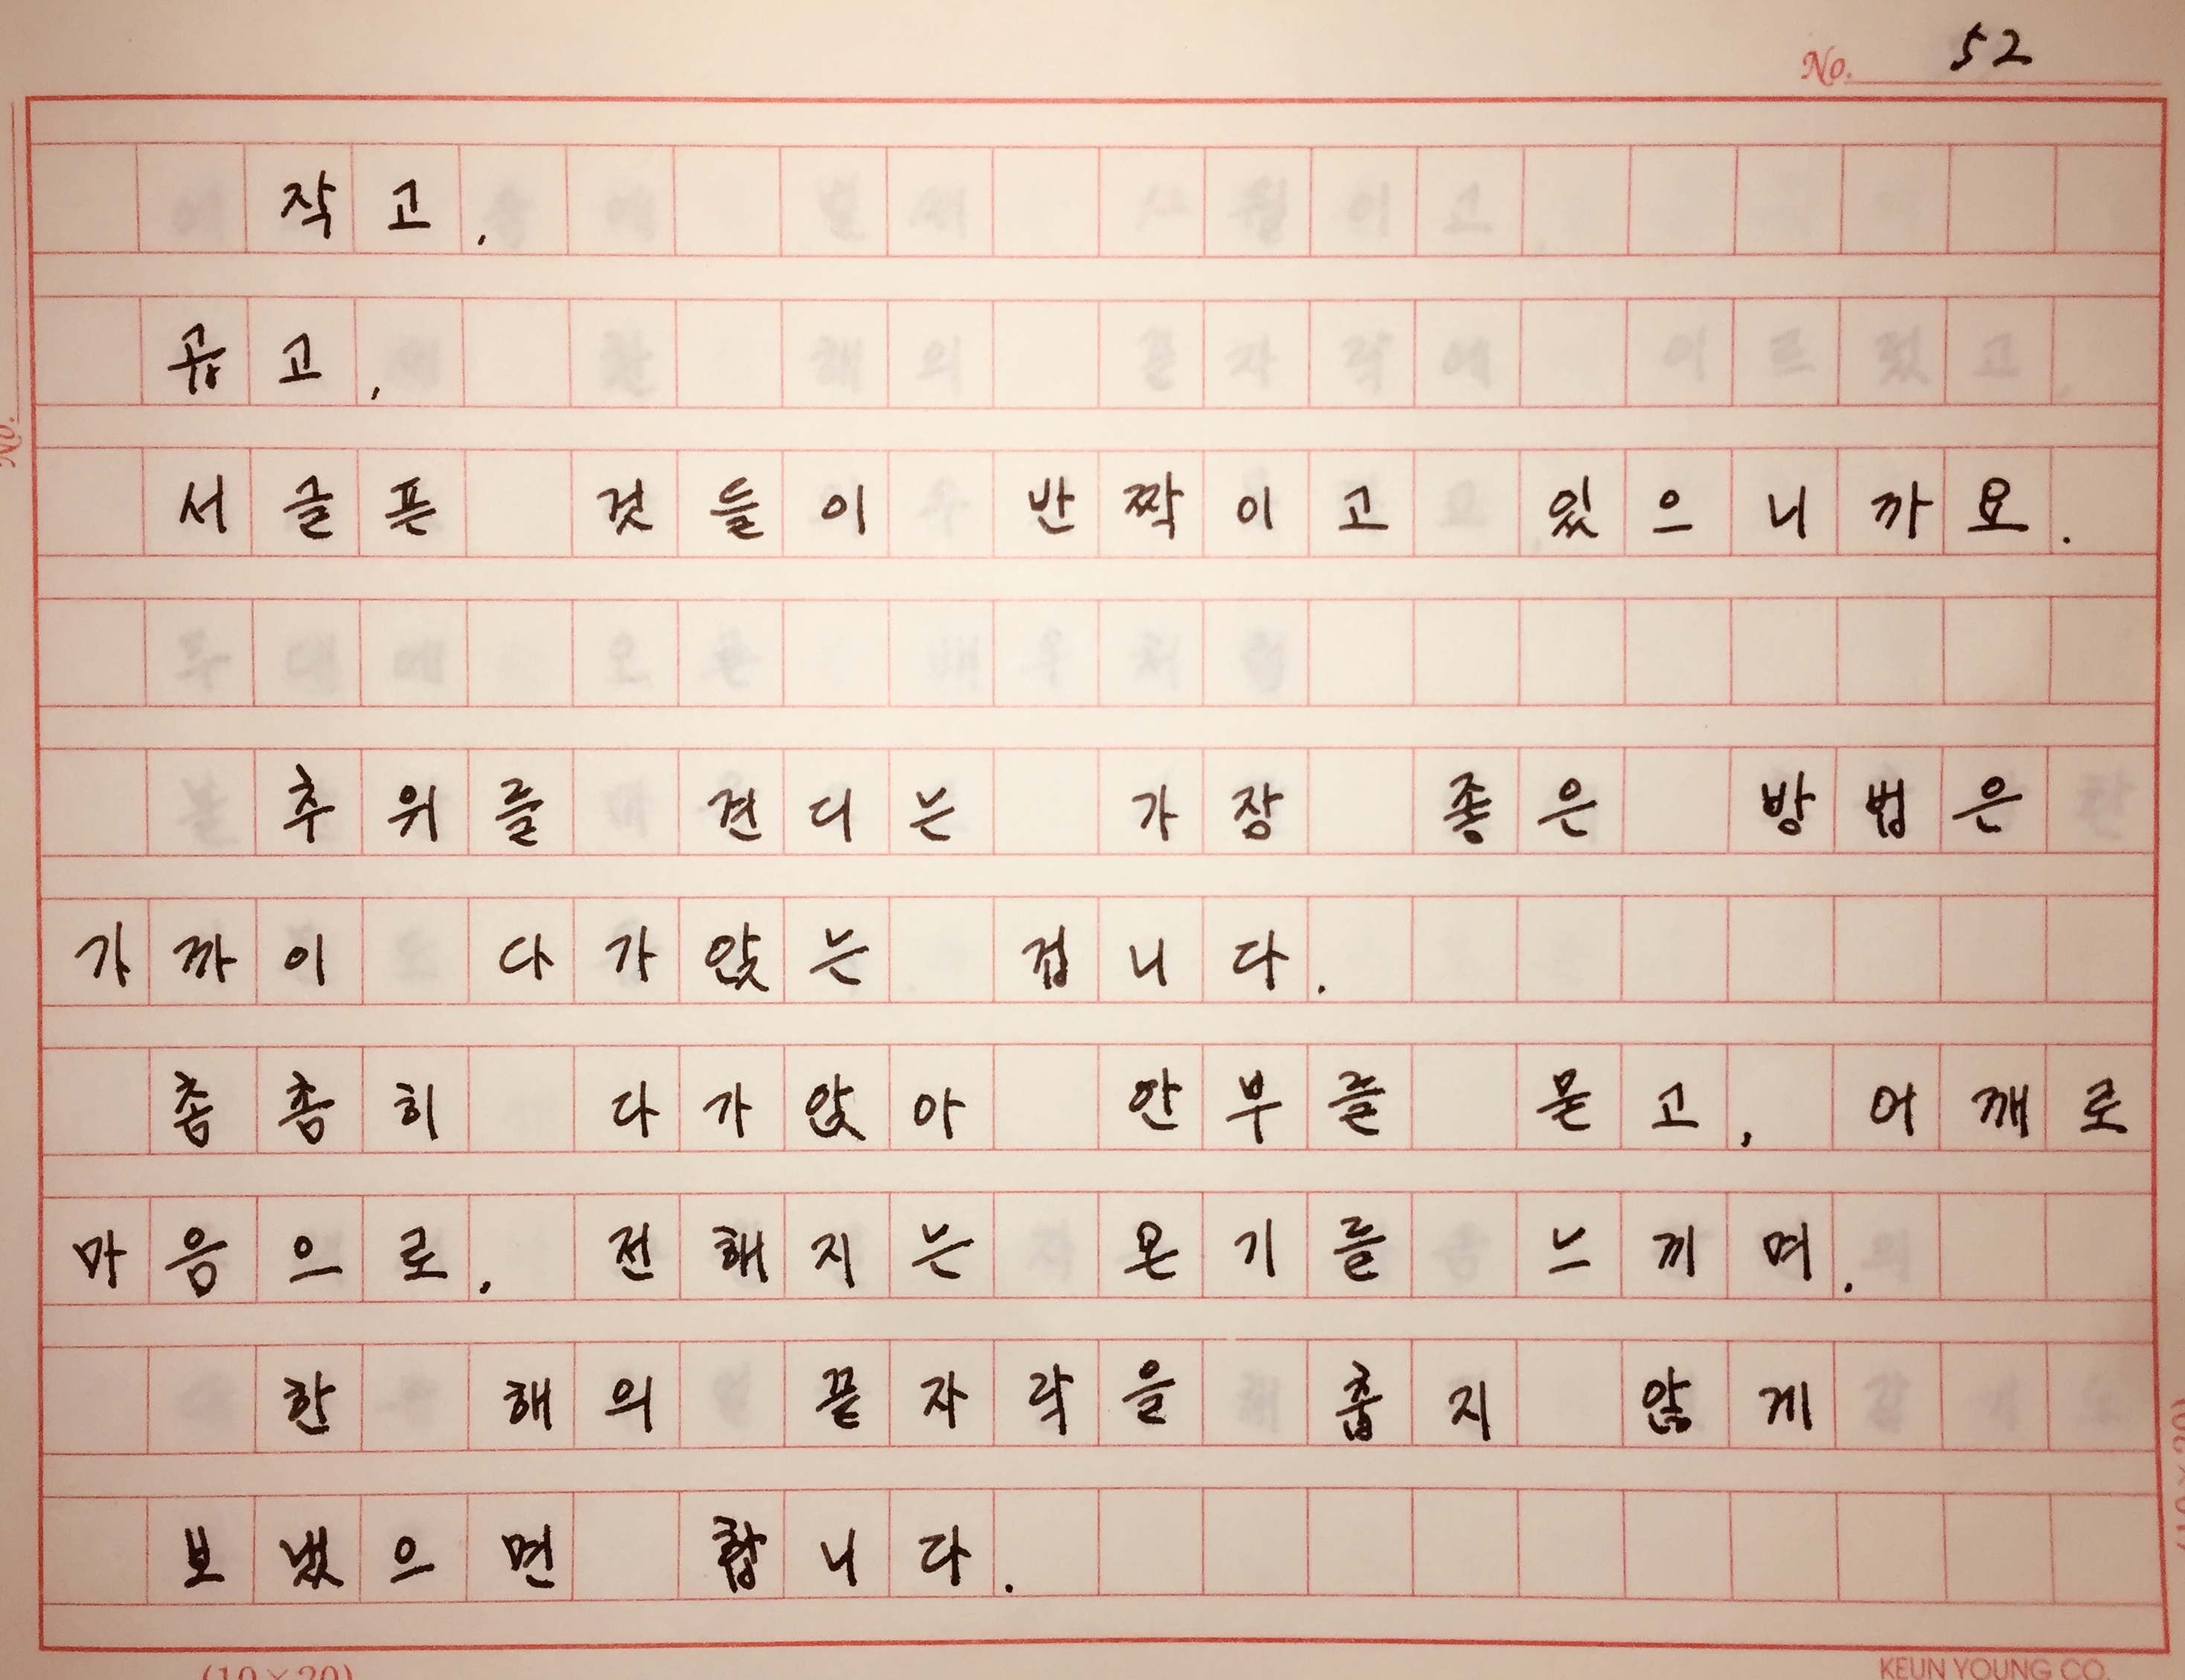 No. 52
작고,
곱고,
서글픈 것들이 반짝이고 있으니까요.
추위를 견디는 가장 좋은 방법은
가까이 다가앉는 겁니다.
촘촘히 다가앉아 안부를 묻고, 어깨로
마음으로, 전해지는 온기를 느끼며.
한 해의 끝자락을 춥지 않게
보냈으면 합니다.
No.
(10×20)
KEUN YOUNG CO.